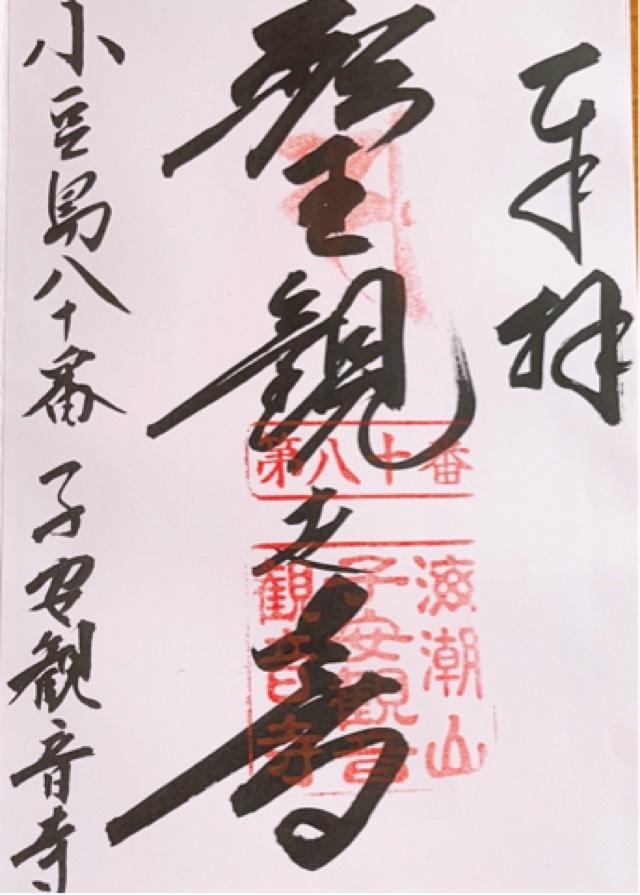 奉拝
聖觀世音
第八十番
海潮山
子安觀音
觀音寺
小豆島八十番 子安観音寺